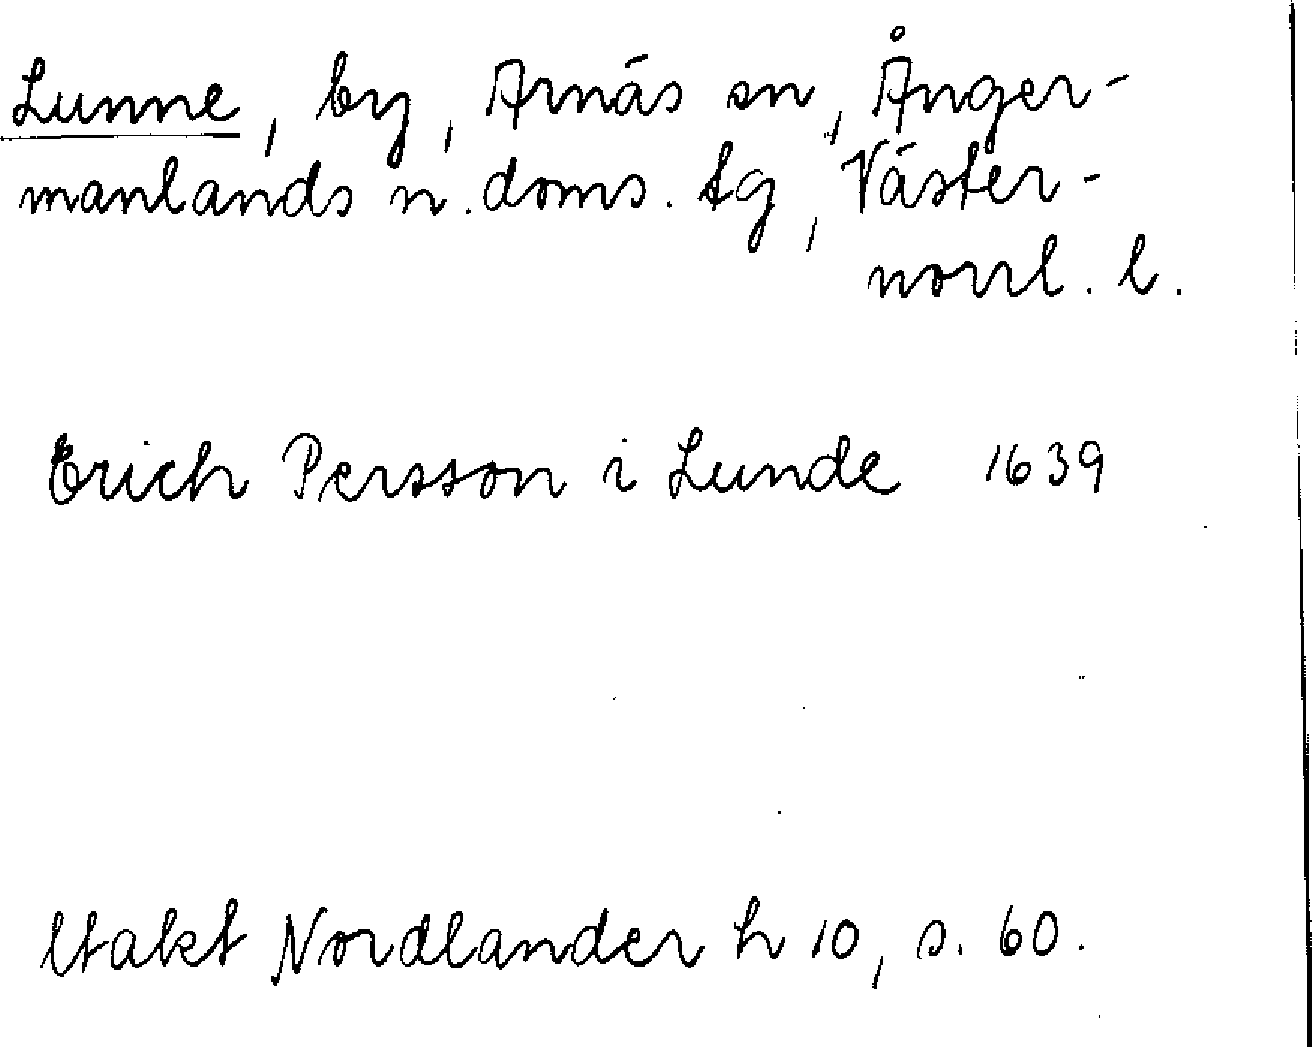 Lunne, by, Arnäs sn, Ånger-
manlands n. doms. tg, Väster-
norrl. l.
Erich Persson i Lunde 1639
Nordlander h 10, s. 60.